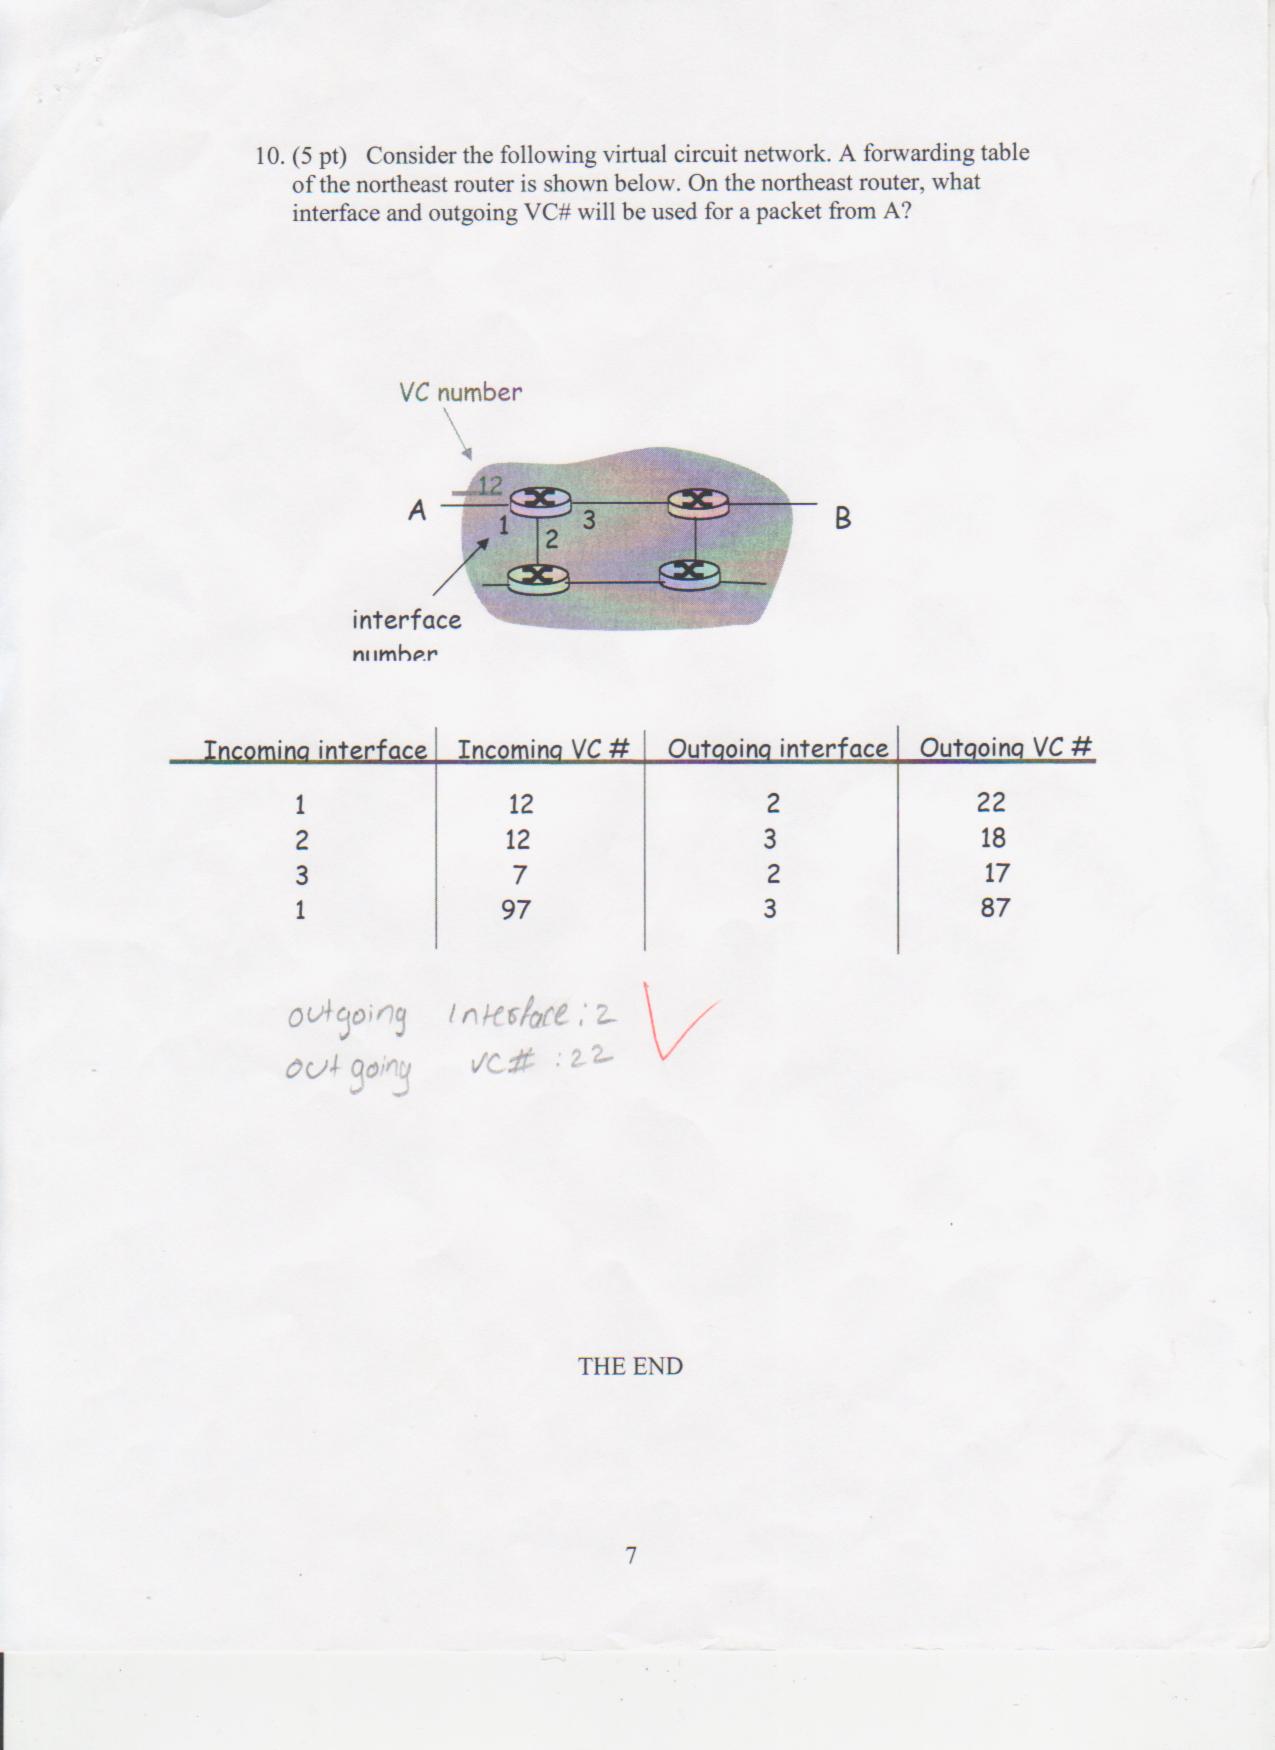 10. (5 pt) Consider the following virtual circuit network. A forwarding table
of the northeast router is shown below. On the northeast router, what
interface and outgoing VC# will be used for a packet from A?
VC number
12
A
1
3
2
B
interface
number
Incoming interface Incoming VC # Outgoing interface Outgoing VC #
1 12 2 22
2 12 3 18
3 7 2 17
1 97 3 87
outgoing interface: 2
outgoing VC# : 22
THE END
7